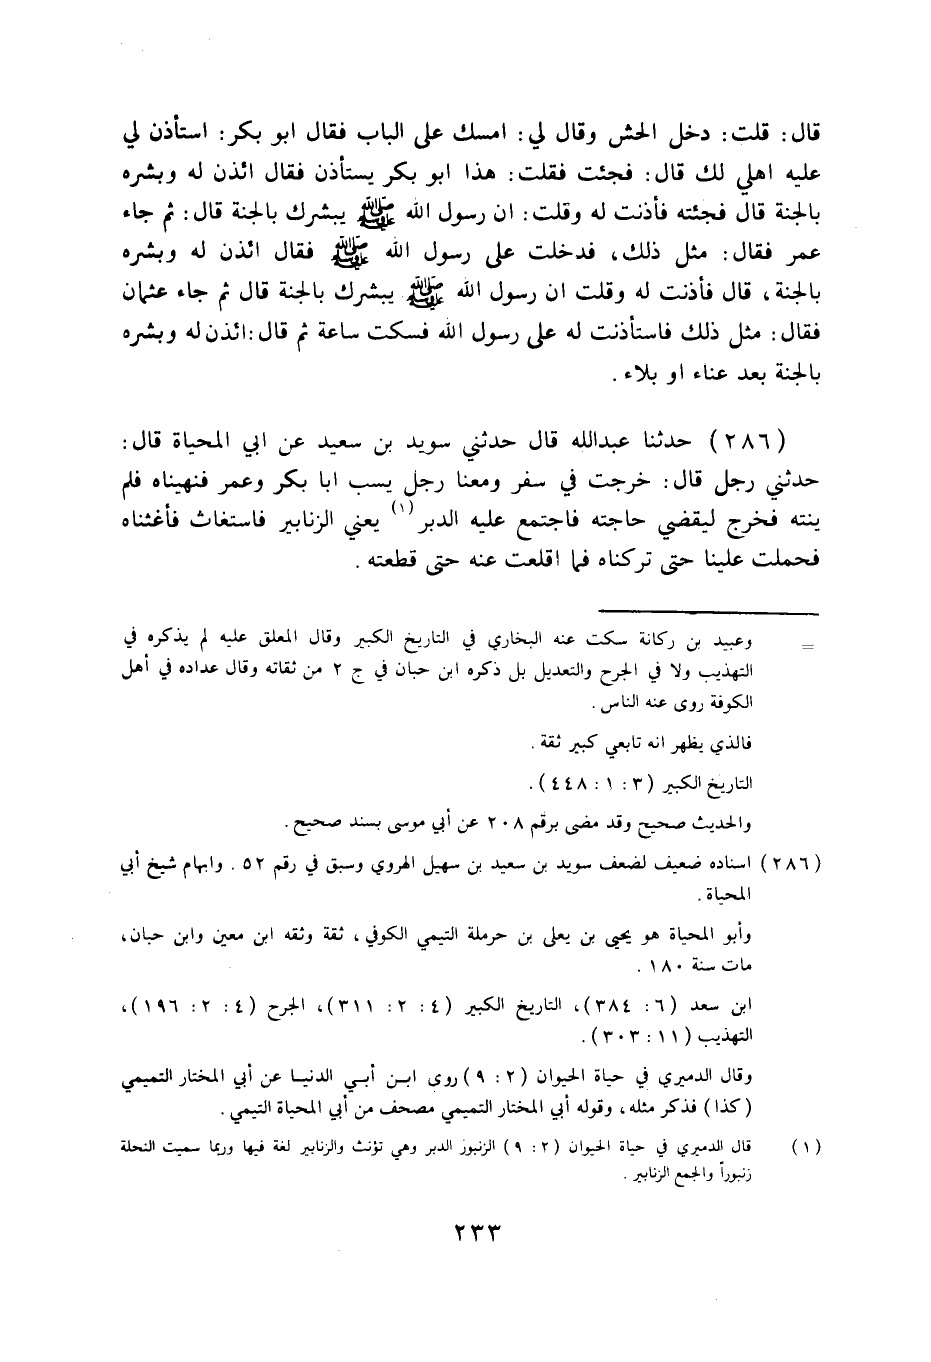 قال: قلت: دخل الحش وقال لي: امسك على الباب فقال ابو بكر: استأذن لي
عليه اهلي لك قال: فجئت فقلت: هذا ابو بكر يستأذن فقال ائذن له وبشره
بالجنة قال فجئته فأذنت له وقلت: ان رسول الله ﷺ يبشرك بالجنة قال: ثم جاء
عمر فقال: مثل ذلك، فدخلت على رسول الله ﷺ فقال ائذن له وبشره
بالجنة، قال فأذنت له وقلت ان رسول الله ﷺ يبشرك بالجنة قال ثم جاء عثمان
فقال: مثل ذلك فاستأذنت له على رسول الله فسكت ساعة ثم قال: ائذن له وبشره
بالجنة بعد عناء او بلاء.
(٢٨٦) حدثنا عبدالله قال حدثني سويد بن سعيد عن ابي المحياة قال:
حدثني رجل قال: خرجت في سفر ومعنا رجل يسب ابا بكر وعمر فنهيناه فلم
ينته فخرج ليقضي حاجته فاجتمع عليه الدبر (١) يعني الزنابير فاستغاث فأغثناه
فحملت علينا حتى تركناه فما اقلعت عنه حتى قطعته.
= وعبيد بن ركانة سكت عنه البخاري في التاريخ الكبير وقال المعلق عليه لم يذكره في
التهذيب ولا في الجرح والتعديل بل ذكره ابن حبان في ج ٢ من ثقاته وقال عداده في أهل
الكوفة روى عنه الناس.
فالذي يظهر انه تابعي كبير ثقة.
التاريخ الكبير (٣: ١: ٤٤٨).
والحديث صحيح وقد مضى برقم ٢٠٨ عن أبي موسى بسند صحيح.
(٢٨٦) اسناده ضعيف لضعف سويد بن سعيد بن سهيل الهروي وسبق في رقم ٥٢. وابهام شيخ أبي
المحياة.
وأبو المحياة هو يحيى بن يعلى بن حرملة التيمي الكوفي، ثقة وثقه ابن معين وابن حبان،
مات سنة ١٨٠.
ابن سعد (٦: ٣٨٤)، التاريخ الكبير (٤: ٢: ٣١١)، الجرح (٤: ٢: ١٩٦)،
التهذيب (١١: ٣٠٣).
وقال الدميري في حياة الحيوان (٢: ٩) روى ابن أبي الدنيا عن أبي المختار التميمي
(كذا) فذكر مثله، وقوله أبي المختار التميمي مصحف من أبي المحياة التيمي.
(١) قال الدميري في حياة الحيوان (٢: ٩) الزنبور الدبر وهي تؤنث والزنابير لغة فيها وربما سميت النحلة
زنبوراً والجمع الزنابير.
٢٣٣